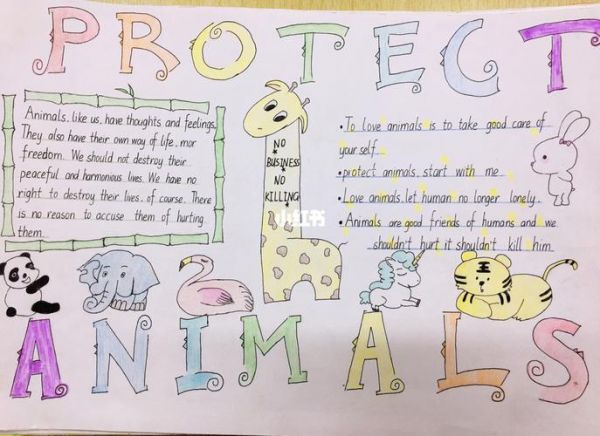 PROTECT
Animals, like us, have thoughts and feelings
They also have their own way of life, mor
freedom. We should not destroy their
peaceful and harmonious lives. We have no
right to destroy their lives, of course. There
is no reason to accuse them of hurting
them.
NO
BUSINESS
NO
KILLING
小红书
•To love animals is to take good care of
your self.
•protect animals, start with me
•Love animals, let human no longer lonely.
•Animals are good friends of humans and we
shouldn't hurt it shouldn't kill him
王
ANIMALS